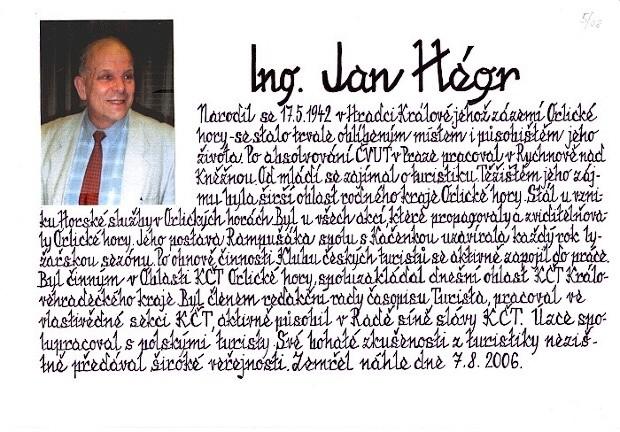 5/08
Ing. Jan Hégr
Narodil se 17.5.1942 v Hradci Králové jehož zázemí Orlické
hory - se stalo trvale oblíbeným místem i působištěm jeho
života. Po absolvování ČVUT v Praze pracoval v Rychnově nad
Kněžnou. Od mládí se zajímal o turistiku. Těžištěm jeho záj-
mu byla širší oblast rodného kraje Orlické hory. Stál u vzni-
ku Horské služby v Orlických horách. Byl u všech akcí, které propagovaly a zviditelňova-
ly Orlické hory. Jeho postava Rampušáka spolu s Káčenkou uzavírala každý rok ly-
žařskou sezónu. Po obnově činnosti Klubu českých turistů se aktivně zapojil do práce.
Byl činným v Oblasti KČT Orlické hory, spoluzakládal dnešní oblast KČT Králo-
véhradeckého kraje. Byl členem redakční rady časopisu Turista, pracoval ve
vlastivědné sekci KČT, aktivně působil v Radě síně slávy KČT. Úzce spo-
lupracoval s polskými turisty. Své bohaté zkušenosti z turistiky neziš-
tně předával široké veřejnosti. Zemřel náhle dne 7.8.2006.